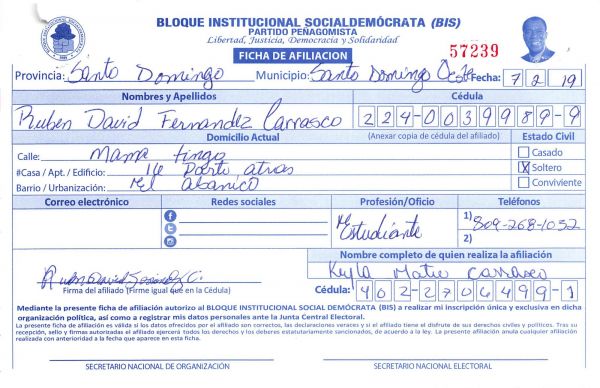 BLOQUE INSTITUCIONAL SOCIALDEMÓCRATA (BIS)
PARTIDO PEÑAGOMISTA
Libertad, Justicia, Democracia y Solidaridad
FICHA DE AFILIACION
57239
Provincia: Santo Domingo Municipio: Santo Domingo Oeste Fecha: 7/2/19
Nombres y Apellidos Cédula
Ruben David Fernandez Carrasco 224-0039989-9
Domicilio Actual (Anexar copia de cédula del afiliado) Estado Civil
Calle: Mama tingo Casado
#Casa / Apt. / Edificio: 16 Parte atras X Soltero
Barrio / Urbanización: El abanico Conviviente
Correo electrónico Redes sociales Profesión/Oficio Teléfonos
Estudiante 1) 809-268-1032
2)
Nombre completo de quien realiza la afiliación
Keyla Mateo Carrasco
Firma del afiliado (Firme igual que en la Cédula) Cédula: 402-2706499-1
Mediante la presente ficha de afiliación autorizo al BLOQUE INSTITUCIONAL SOCIAL DEMÓCRATA (BIS) a realizar mi inscripción única y exclusiva en dicha
organización política, así como a registrar mis datos personales ante la Junta Central Electoral.
La presente ficha de afiliación es válida si los datos ofrecidos por el afiliado son correctos, las declaraciones veraces y si el afiliado tiene el disfrute de sus derechos civiles y políticos. Tras su
recepción, sello y firmas autorizadas el afiliado ejercerá todos los derechos y los deberes estatutariamente sancionados, de acuerdo a la ley. La presente afiliación anula cualquier afiliación
realizada con anterioridad a la fecha que aparece en esta ficha.
SECRETARIO NACIONAL DE ORGANIZACIÓN SECRETARIO NACIONAL ELECTORAL